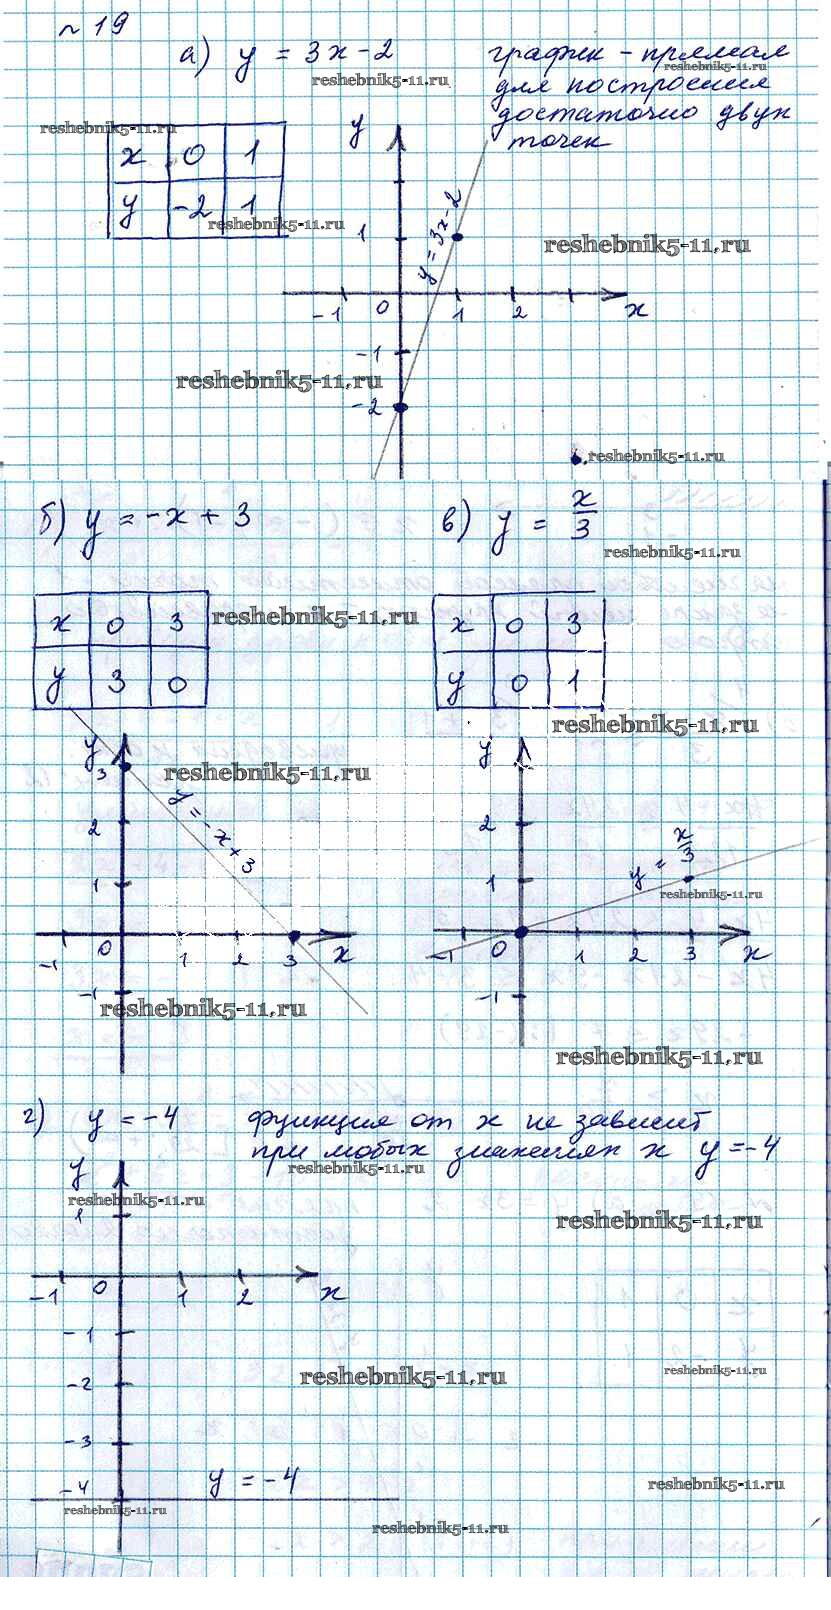 № 19
а) y = 3x - 2
график - прямая
для построения
достаточно двух
точек
reshebnik5-11.ru
reshebnik5-11.ru
reshebnik5-11.ru
x 0 1
y -2 1
reshebnik5-11.ru
reshebnik5-11.ru
y
1
y = 3x - 2
-1 0 1 2 x
-1
reshebnik5-11.ru
-2
reshebnik5-11.ru
б) y = -x + 3
в) y = x/3
reshebnik5-11.ru
x 0 3
y 3 0
reshebnik5-11.ru
x 0 3
y 0 1
reshebnik5-11.ru
y
3
reshebnik5-11.ru
y = -x + 3
2
1
-1 0 1 2 3 x
-1
reshebnik5-11.ru
y
2
y = x/3
1
reshebnik5-11.ru
-1 0 1 2 3 x
-1
reshebnik5-11.ru
г) y = -4
функция от x не зависит
при любых значениях x y = -4
reshebnik5-11.ru
y
reshebnik5-11.ru
1
reshebnik5-11.ru
-1 0 1 2 x
-1
reshebnik5-11.ru
reshebnik5-11.ru
-2
-3
y = -4
-4
reshebnik5-11.ru
reshebnik5-11.ru
reshebnik5-11.ru